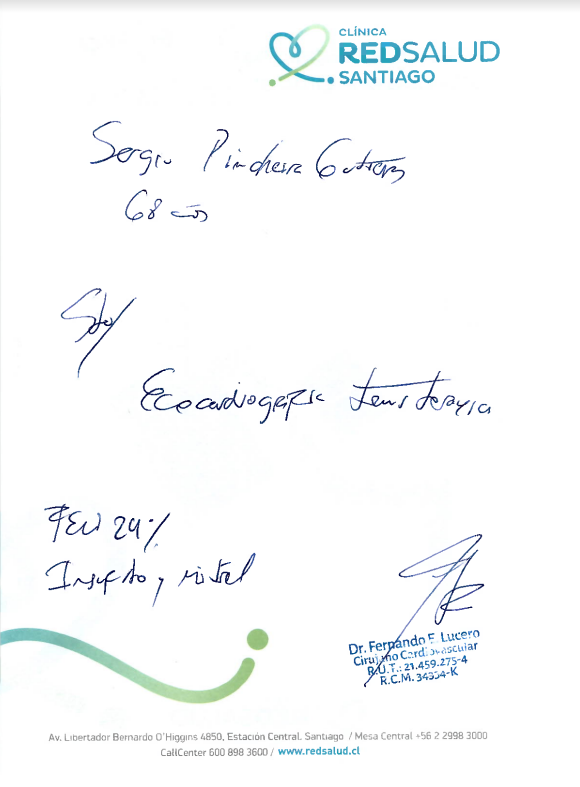 CLÍNICA
REDSALUD
SANTIAGO
Sergio Pincheira Gutierrez
68 años
Ecocardiografia transtoracica
FEVI 24%
Insuf Ao y mitral
Dr. Fernando F. Lucero
Cirujano Cardiovascular
R.U.T.: 21.459.275-4
R.C.M. 34334-K
Av. Libertador Bernardo O'Higgins 4850, Estación Central. Santiago / Mesa Central +56 2 2998 3000
CallCenter 600 898 3600 / www.redsalud.cl